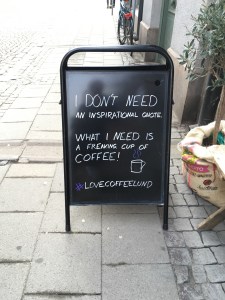 I DON'T NEED
AN INSPIRATIONAL QUOTE.
WHAT I NEED IS
A FREAKING CUP OF
COFFEE!
#LOVECOFFEELUND